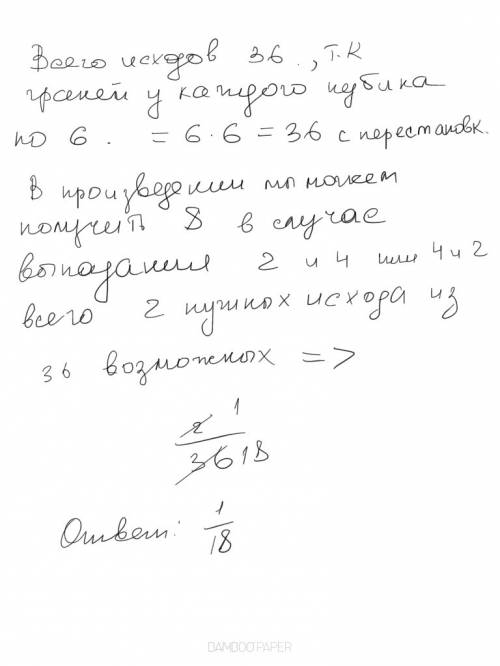 Всего исходов 36., т.к
граней у каждого кубика
по 6. = 6·6 = 36 с перестановк.
В произведении мы можем
получить 8 в случае
выпадания 2 и 4 или 4 и 2
всего 2 нужных исхода из
36 возможных =>
2 1
36 18
Ответ: 1/18
BAMBOOPAPER